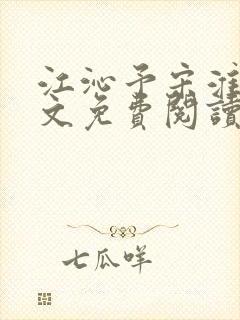 江沁予宋淮
文免費閱讀
七瓜咩